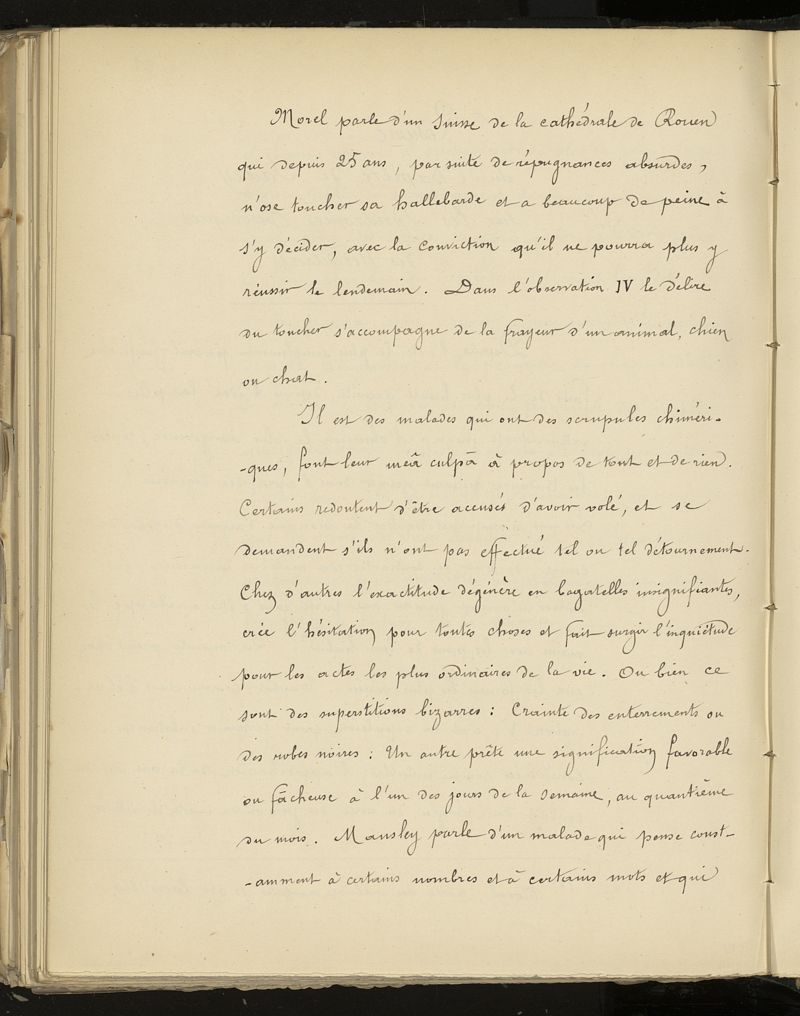 Morel parle d'un suisse de la cathédrale de Rouen
qui depuis 25 ans, par suite de répugnances absurdes,
n'ose toucher sa hallebarde et a beaucoup de peine à
s'y décider, avec la conviction qu'il ne pourra plus y
réussir le lendemain. Dans l'observation IV le délire
du toucher s'accompagne de la frayeur d'un animal, chien
ou chat.
Il est des malades qui ont des scrupules chiméri-
-ques, font leur meâ culpâ à propos de tout et de rien.
Certains redoutent d'être accusés d'avoir volé, et se
demandent s'ils n'ont pas effectué tel ou tel détournement.
Chez d'autres l'exactitude dégénère en bagatelles insignifiantes,
crée l'hésitation pour toutes choses et fait surgir l'inquiétude
pour les actes les plus ordinaires de la vie. Ou bien ce
sont des superstitions bizarres : Crainte des enterrements ou
des robes noires : Un autre prête une signification favorable
ou fâcheuse à l'un des jours de la semaine, au quantième
du mois. Mansley parle d'un malade qui pense const-
-amment à certains nombres et à certains mots et qui